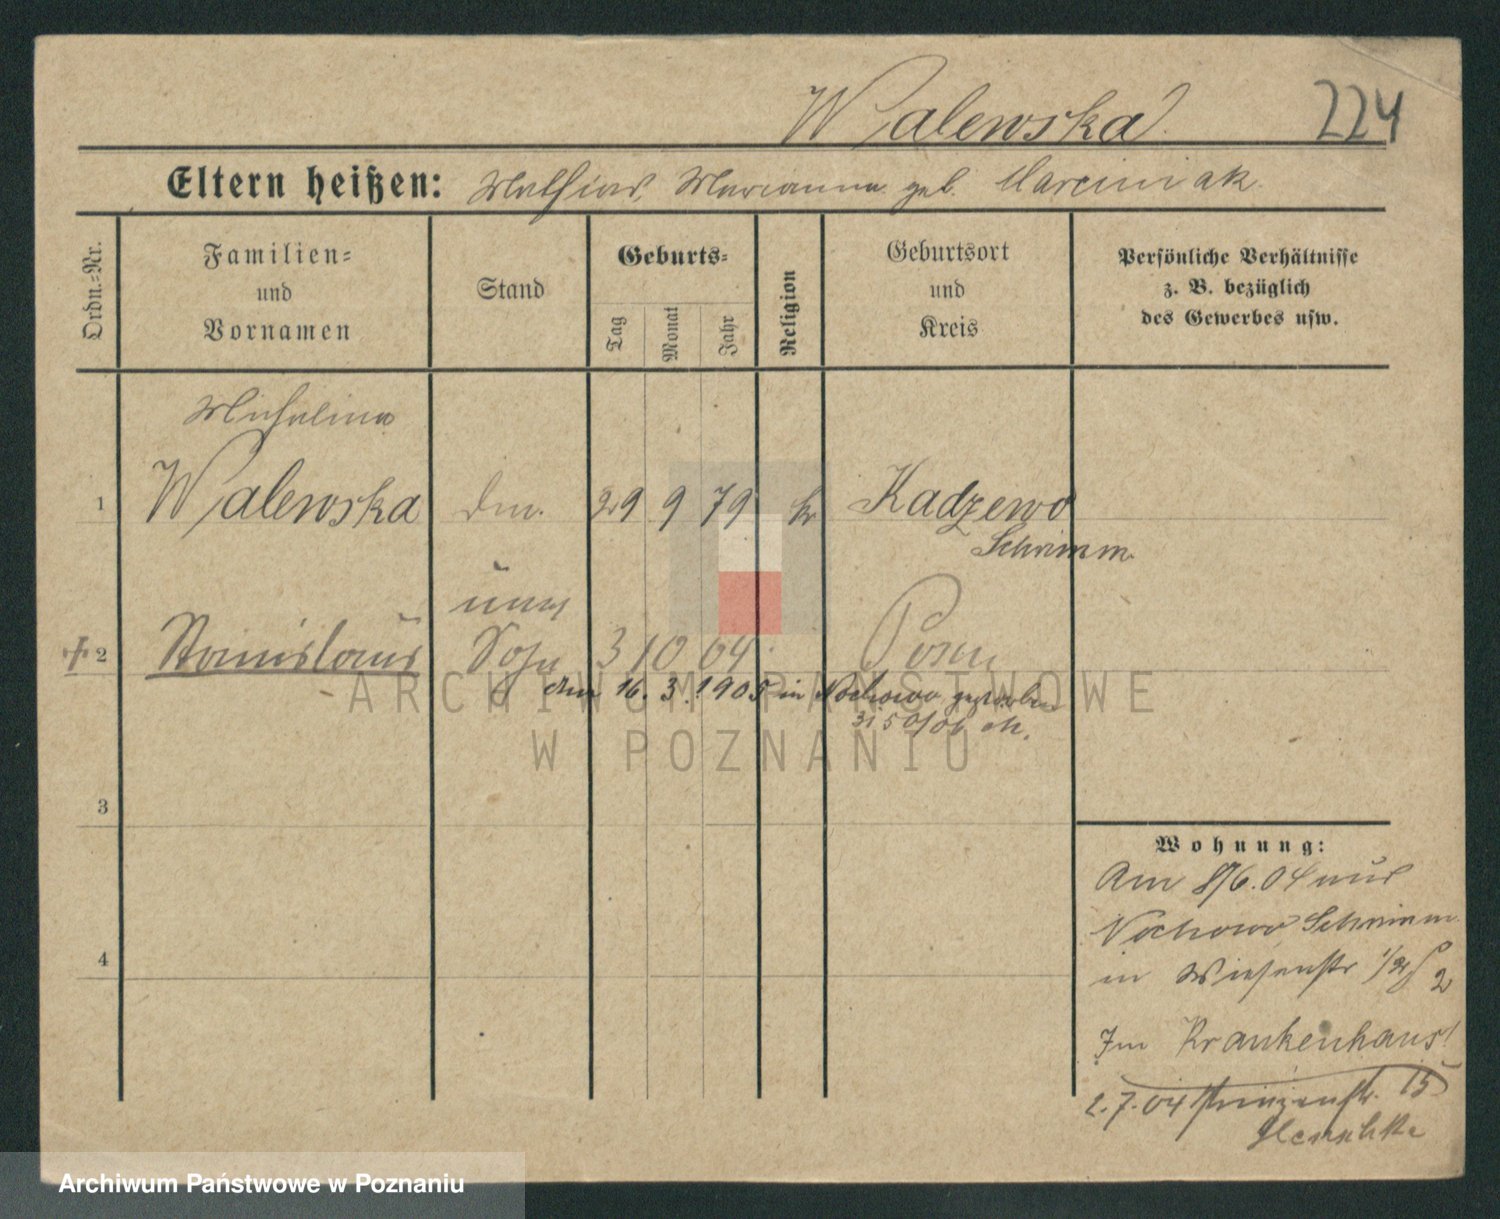 Walewska
224
Eltern heißen: Mathias, Marianna geb. Marciniak
Ordn.-Nr.
Familien-
und
Vornamen
Stand
Geburts-
Tag
Monat
Jahr
Religion
Geburtsort
und
Kreis
Persönliche Verhältnisse
z. B. bezüglich
des Gewerbes usw.
Michalina
1 Walewska 29 9 79 k Kadzewo
Schrimm
uneh
2 Stanislaus Sohn 3 10 04 Posen
am 16. 3. 1905 in Nochowo gestorben
3
4
Wohnung:
Am 8/6.04 aus
Nochowo Schrimm
in Wiesenstr
Im Krankenhaus
2.7.04 Prinzenstr. 15
ARCHIWUM PAŃSTWOWE
W POZNANIU
Archiwum Państwowe w Poznaniu